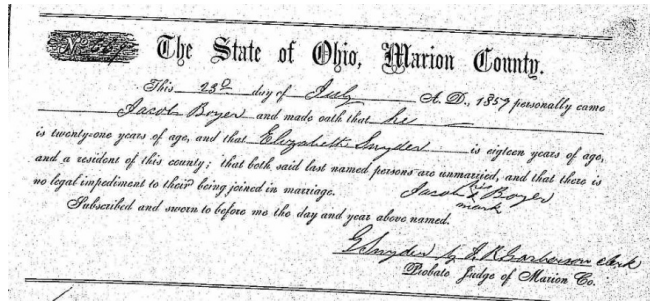 The State of Ohio, Marion County.
This 23d day of July A. D., 1859 personally came
Jacob Boyer and made oath that he
is twenty-one years of age, and that Elizabeth Snyder is eigteen years of age,
and a resident of this county; that both said last named persons are unmarried, and that there is
no legal impediment to their being joined in marriage.
Jacob his x mark Boyer
Subscribed and sworn to before me the day and year above named.
Snyder by J. R. Garberson clerk
Probate Judge of Marion Co.